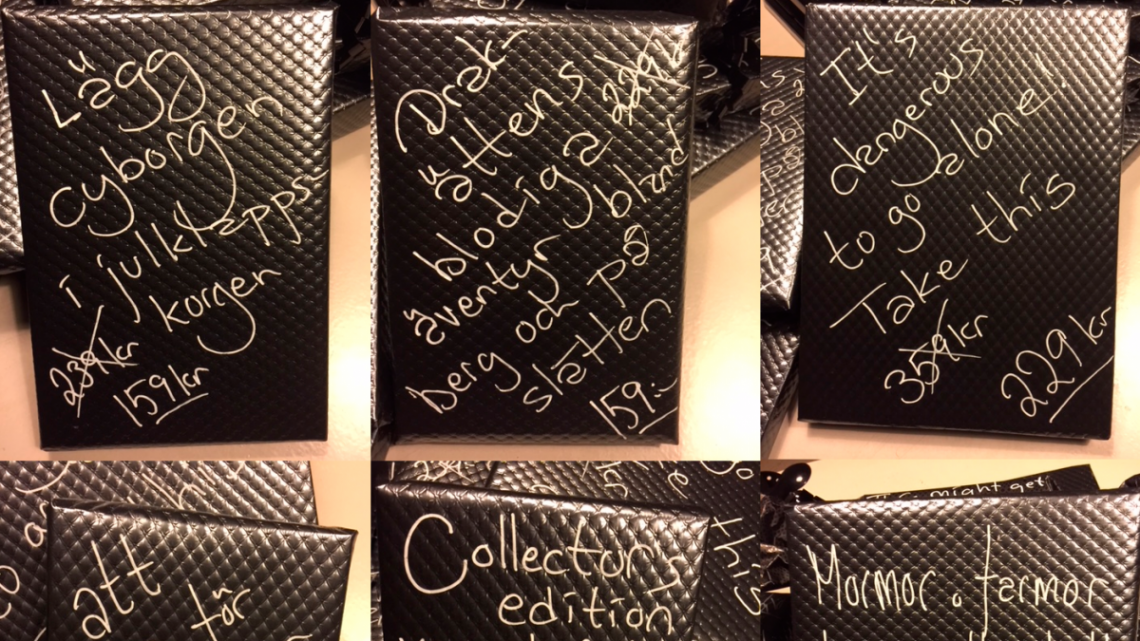 Lägg
cyborgen
i julklapps
korgen
239 kr
159 kr
Drak-
ättens
229:-
blodiga
äventyr bland
berg och på
slätten
159:-
It's
dangerous
to go alone!
Take this
359 kr
229 kr
att
för
Collectors
edition
this
might get
Mormor o farmor